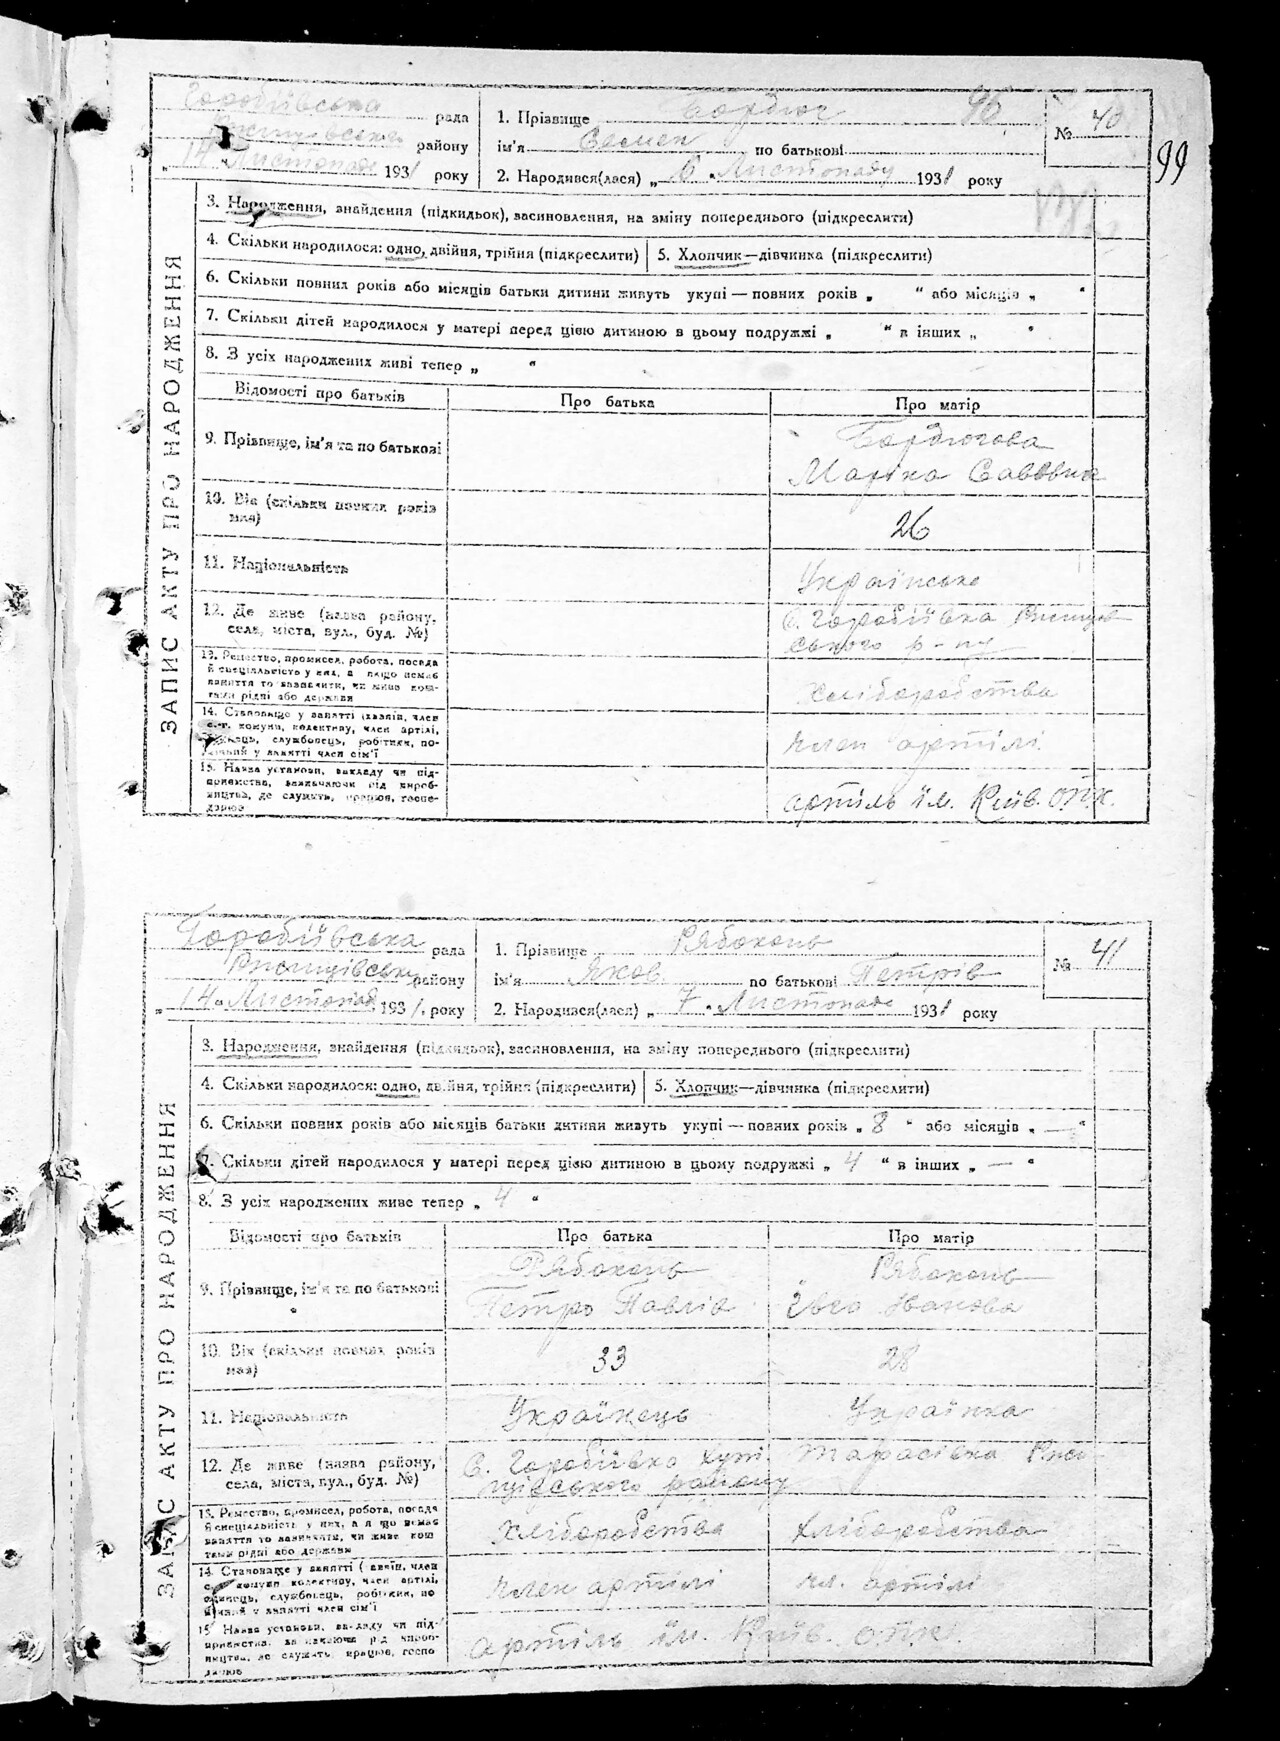 Горобіївська рада
Ржищівськ району
„ 14 " Листопада 1931 року
1. Прізвище Бордюг 96
ім'я Семен по батькові
2. Народився(лася) „ 6 " Листопаду 1931 року
№ 40
99
ЗАПИС АКТУ ПРО НАРОДЖЕННЯ
3. Народження, знайдення (підкидьок), засиновлення, на зміну попереднього (підкреслити)
4. Скільки народилося: одно, двійня, трійня (підкреслити)
5. Хлопчик—дівчинка (підкреслити)
6. Скільки повних років або місяців батьки дитини живуть укупі — повних років „ " або місяців „ "
7. Скільки дітей народилося у матері перед цією дитиною в цьому подружжі „ " в інших „ "
8. З усіх народжених живі тепер „ "
Відомості про батьків
Про батька
Про матір
9. Прізвище, ім'я та по батькові
Бордюгова
Марина Савовна
10. Вік (скільки повних років
має)
26
11. Національність
Українське
12. Де живе (назва району,
села, міста, вул., буд. №)
С. Горобіївка Ржищів
ського р-ну
13. Ремество, промисел, робота, посада
й спеціальність у них, а якщо немає
заняття то зазначити, чи живе кош-
тами рідні або держави
Хліборобства
14. Становище у занятті (хазяїн, член
с.-г. комуни, колективу, член артілі,
службовець, робітник, по-
у занятті член сім'ї
член артілі
15. Назва установи, закладу чи під-
приємства, зазначаючи рід вироб-
ництва, де служить, працює, госпо-
дарює
артіль їм. Київ. ОПК.
Горобіївська рада
Ржищівськ району
„ 14 " Листопад 1931. року
1. Прізвище Рябоконь
ім'я Яков по батькові Петрів
2. Народився(лася) „ 7 " Листопада 1931 року
№ 41
ЗАПИС АКТУ ПРО НАРОДЖЕННЯ
3. Народження, знайдення (підкидьок), засиновлення, на зміну попереднього (підкреслити)
4. Скільки народилося: одно, двійня, трійня (підкреслити)
5. Хлопчик—дівчинка (підкреслити)
6. Скільки повних років або місяців батьки дитини живуть укупі — повних років „ 8 " або місяців „ — "
7. Скільки дітей народилося у матері перед цією дитиною в цьому подружжі „ 4 " в інших „ — "
8. З усіх народжених живе тепер „ 4 "
Відомості про батьків
Про батька
Про матір
9. Прізвище, ім'я та по батькові
Рябоконь
Петро Павлів
Рябоконь
Івга Іванова
10. Вік (скільки повних років
має)
33
28
11. Національність
Українець
Українка
12. Де живе (назва району,
села, міста, вул., буд. №)
С. Горобіївка хут. Тарасівка Ржи
щівського району
13. Ремество, промисел, робота, посада
й спеціальність у них, а якщо немає
заняття то зазначити, чи живе кош
тами рідні або держави
Хліборобства
Хліборобства
14. Становище у занятті (хазяїн, член
комуни колективу, член артілі,
одинець, службовець, робітник, по
у занятті член сім'ї
член артілі
чл. артілі
15. Назва установи, закладу чи під-
приємства, зазначаючи рід вироб-
ництва, де служить, працює, госпо
дарює
артіль їм. Київ. ОПК.